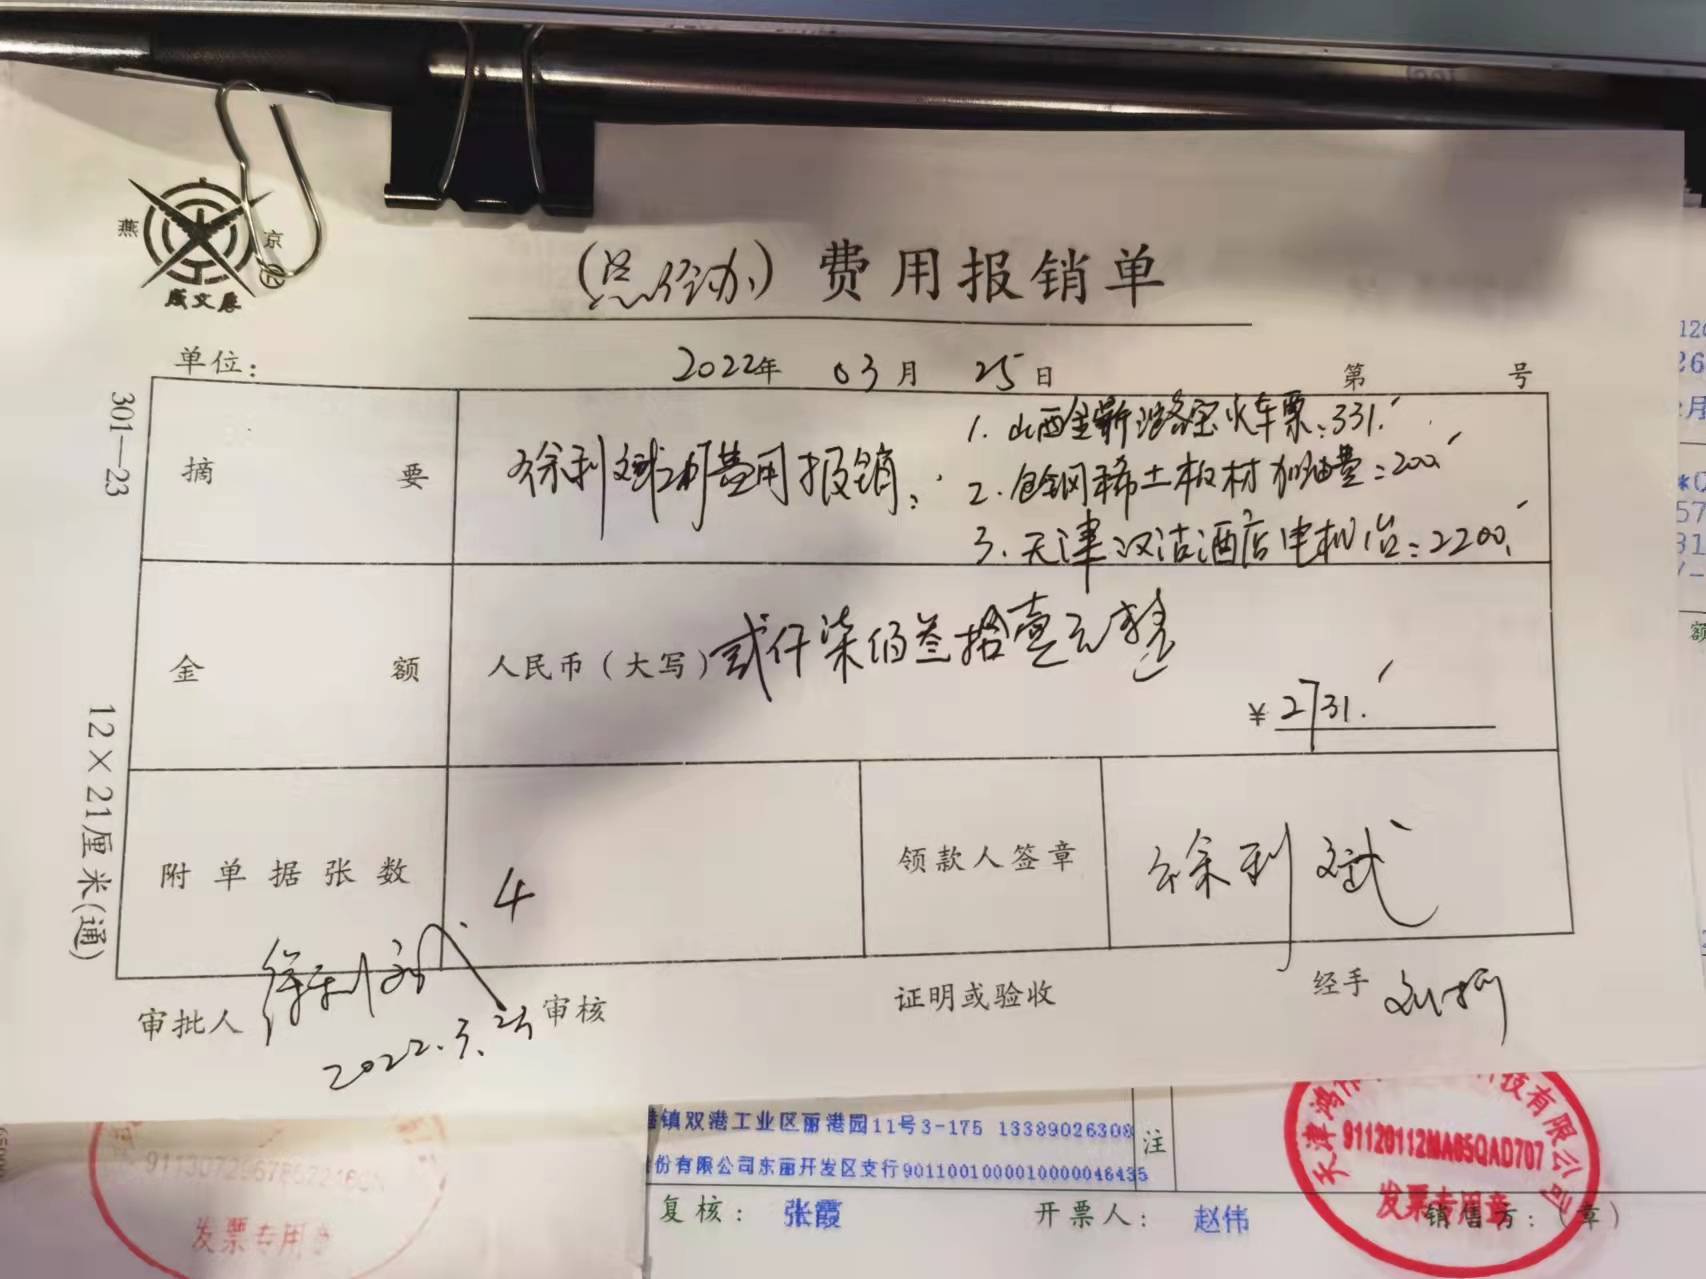 燕 京
成文厚
(总经办) 费用报销单
单位: 2022年 03月 25日 第 号
301—23
12×21厘米(通)
摘 要
徐利斌费用报销:
1. 山西 火车票:331.
2. 包钢稀土板材加油费:200.
3. 天津汉沽酒店电机冶:2200.
金 额
人民币(大写)贰仟柒佰叁拾壹元整
¥ 2731.
附单据张数 4
领款人签章 徐利斌
审批人 徐利斌 审核 证明或验收 经手
2022.3.25
镇双港工业区丽港园11号3-175 13389026308
份有限公司东丽开发区支行9011001000010000046435
注
复核: 张霞 开票人: 赵伟 销售方:(章)
天津鸿 技有限公司
91120112MA05QAD707
发票专用章
发票专用章